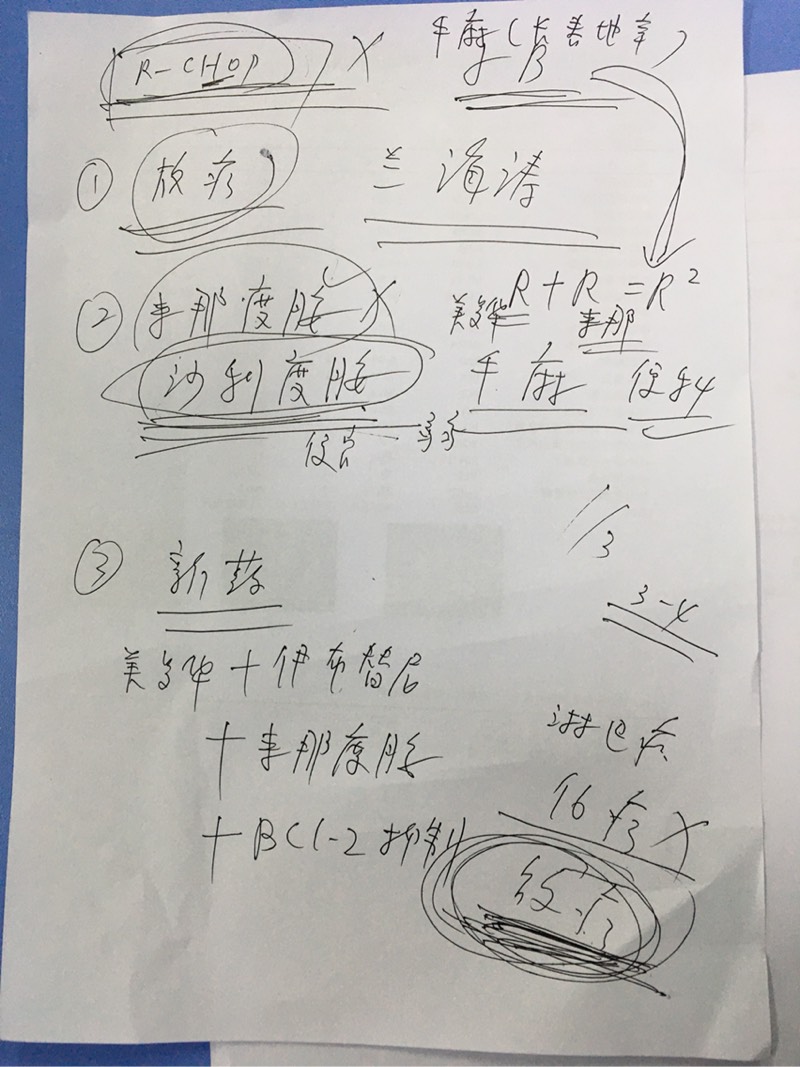 R-CHOP X 手麻(长春地辛)
B
① 放疗 兰海涛
② 来那度胺 X 美罗华R + R = R²
来那
沙利度胺 手麻 便秘
便宜
1/3
③ 新药
3-4
美罗华 + 伊布替尼
+ 来那度胺 淋巴瘤
+ BCl-2抑制 化疗 X
放疗